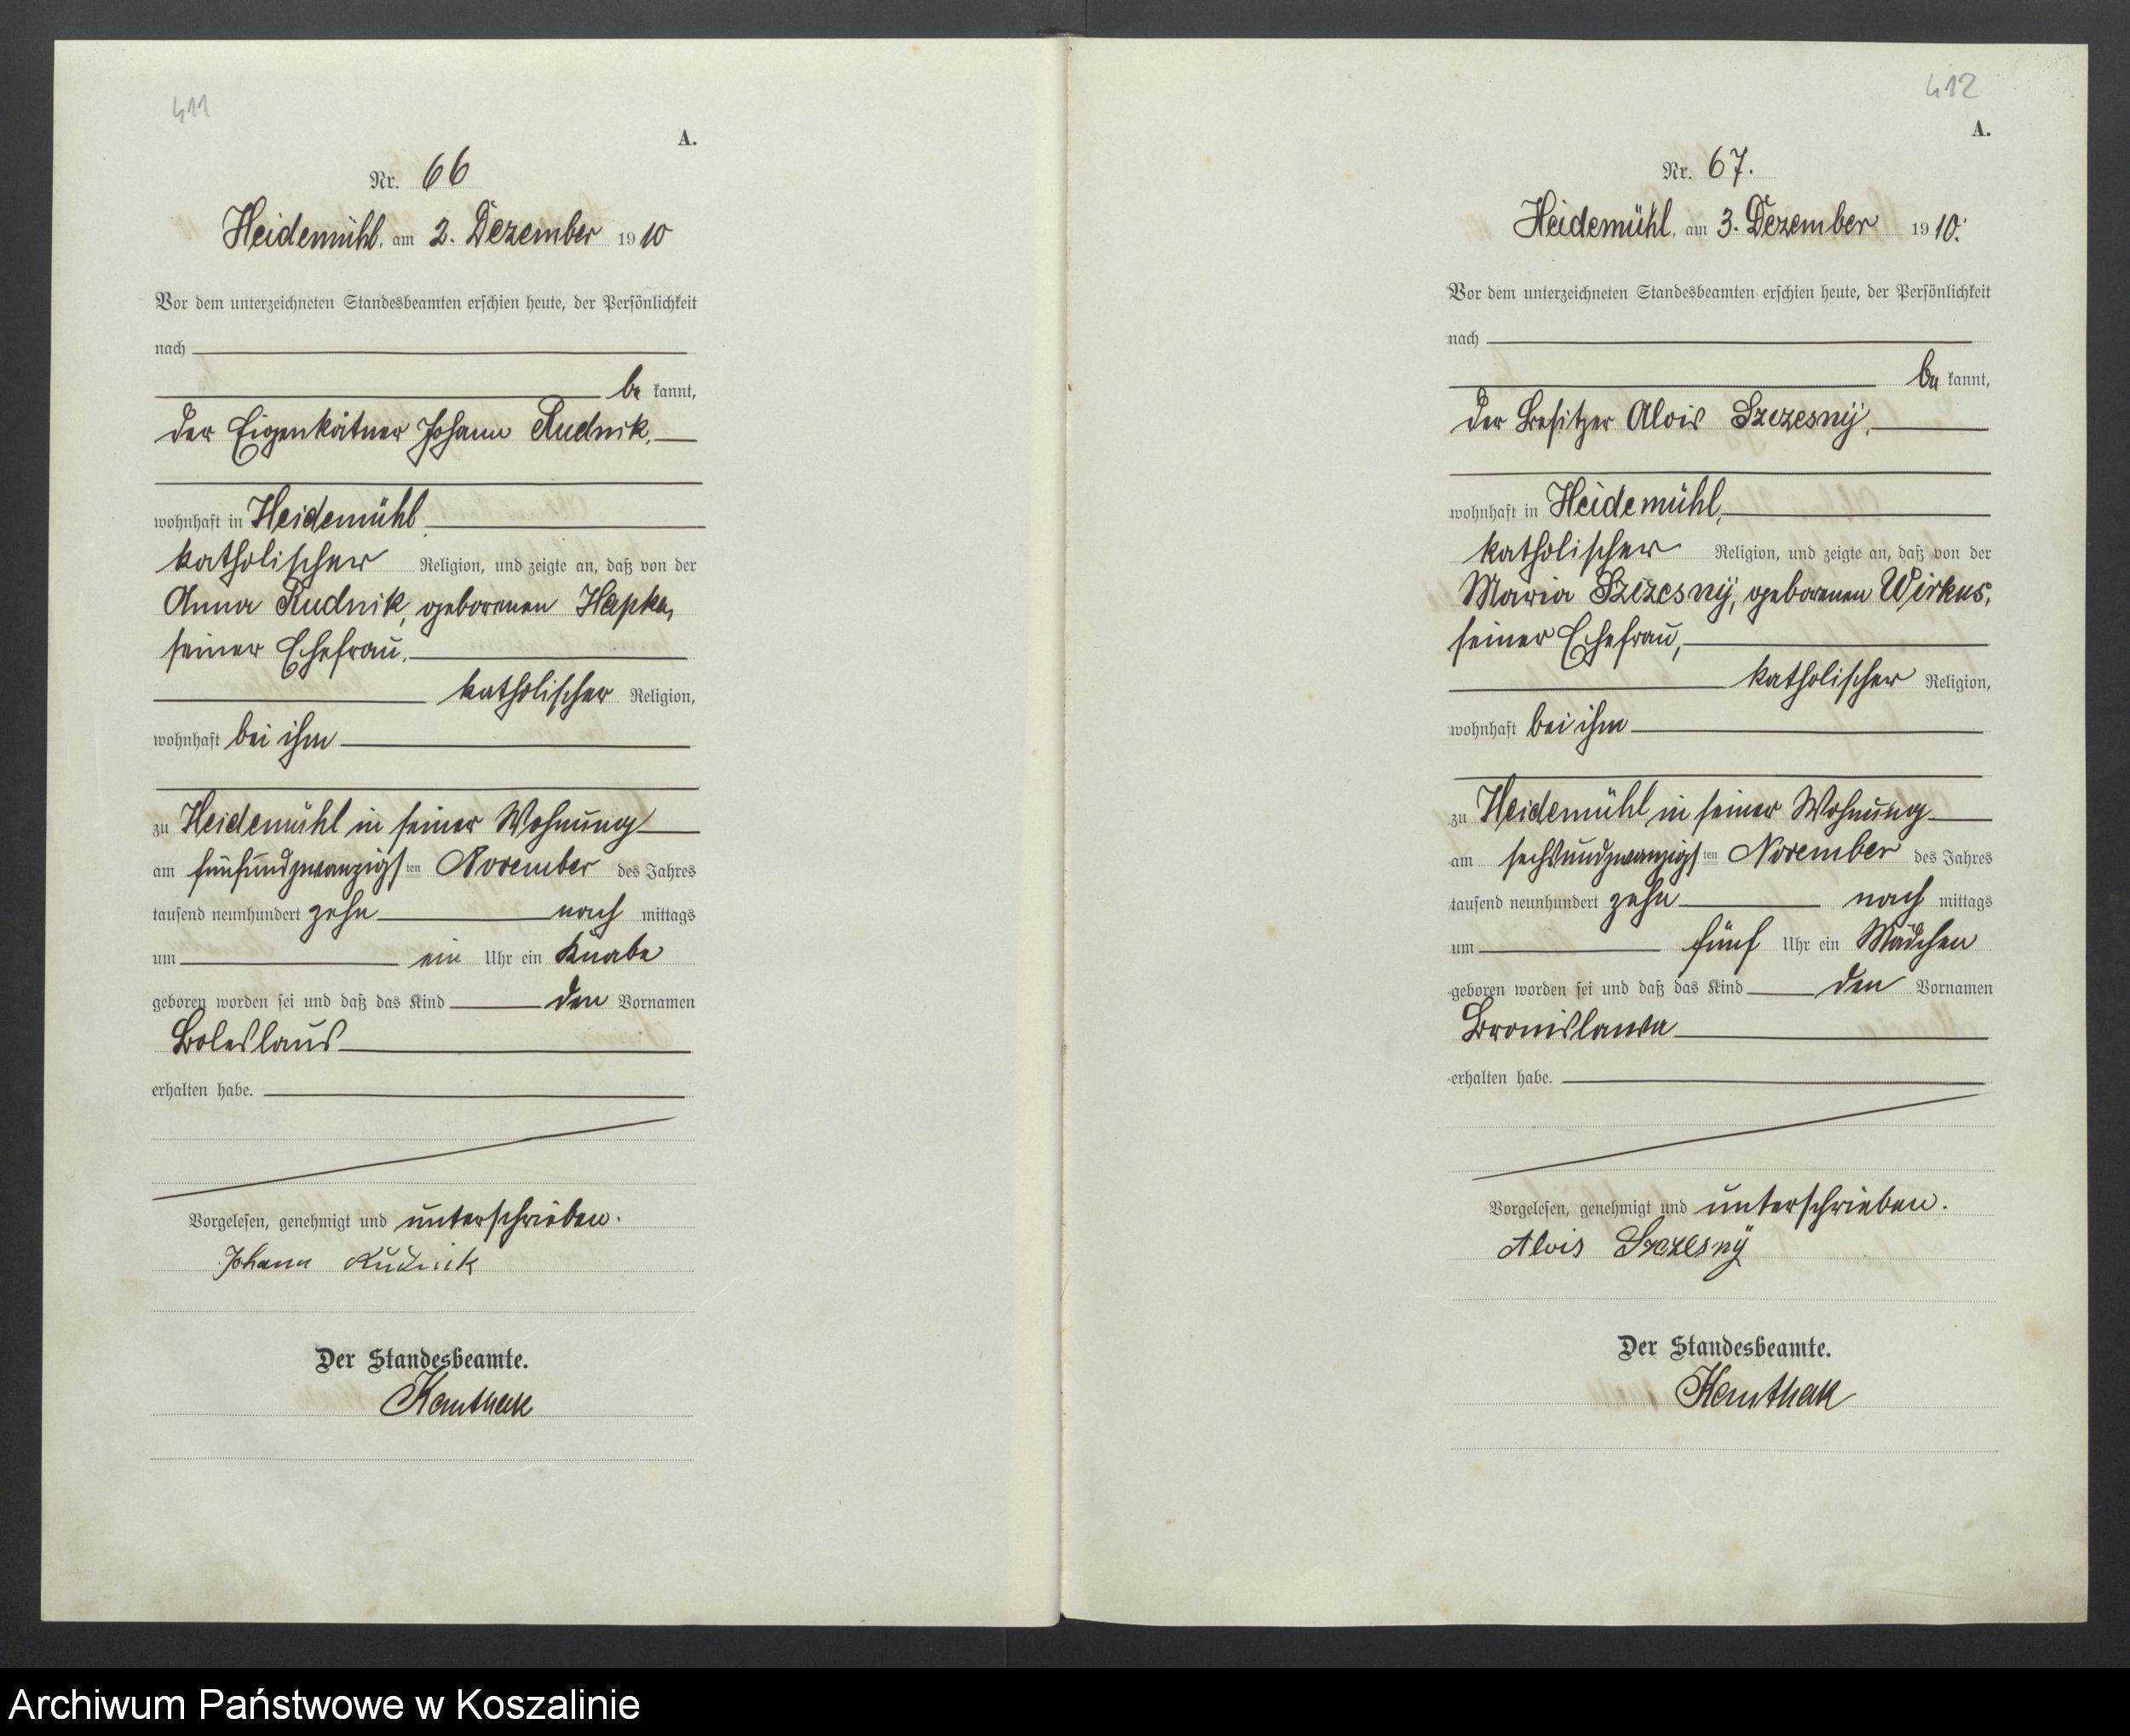 411
A.
Nr. 66
Heidemühl, am 2. Dezember 1910
Vor dem unterzeichneten Standesbeamten erschien heute, der Persönlichkeit
nach
be kannt,
der Eigenkätner Johann Rudnik,
wohnhaft in Heidemühl,
katholischer Religion, und zeigte an, daß von der
Anna Rudnik, geborenen Hapka,
seiner Ehefrau,
katholischer Religion,
wohnhaft bei ihm
zu Heidemühl in seiner Wohnung
am fünfundzwanzigsten November des Jahres
tausend neunhundert zehn nach mittags
um ein Uhr ein Knabe
geboren worden sei und daß das Kind den Vornamen
Boleslaus
erhalten habe.
Vorgelesen, genehmigt und unterschrieben.
Johann Rudnik
Der Standesbeamte.
Kanthak
412
A.
Nr. 67.
Heidemühl, am 3. Dezember 1910.
Vor dem unterzeichneten Standesbeamten erschien heute, der Persönlichkeit
nach
be kannt,
der Besitzer Alois Szczesny,
wohnhaft in Heidemühl,
katholischer Religion, und zeigte an, daß von der
Maria Szczesny, geborenen Wirkus,
seiner Ehefrau,
katholischer Religion,
wohnhaft bei ihm
zu Heidemühl in seiner Wohnung
am sechsundzwanzigsten November des Jahres
tausend neunhundert zehn nach mittags
um fünf Uhr ein Mädchen
geboren worden sei und daß das Kind den Vornamen
Bronislawa
erhalten habe.
Vorgelesen, genehmigt und unterschrieben.
Alois Szczesny
Der Standesbeamte.
Kanthak
Archiwum Państwowe w Koszalinie